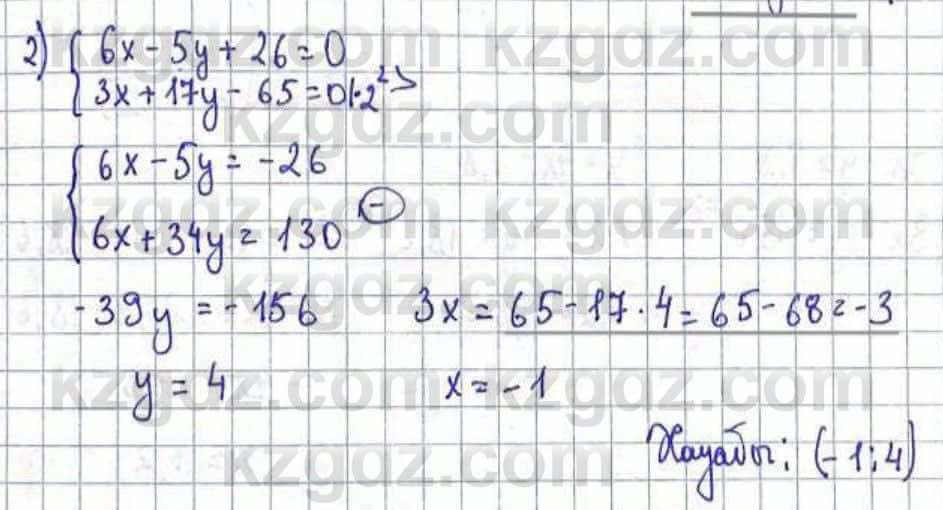 2) { 6x - 5y + 26 = 0
3x + 17y - 65 = 0 |·2 =>
{ 6x - 5y = -26
6x + 34y = 130 (-)
-39y = -156 3x = 65 - 17 · 4 = 65 - 68 = -3
y = 4 x = -1
Жауабы: (-1; 4)
kzgdz.com
kzgdz.com
kzgdz.com
kzgdz.com
kzgdz.com
kzgdz.com
kzgdz.com
kzgdz.com
kzgdz.com
kzgdz.com